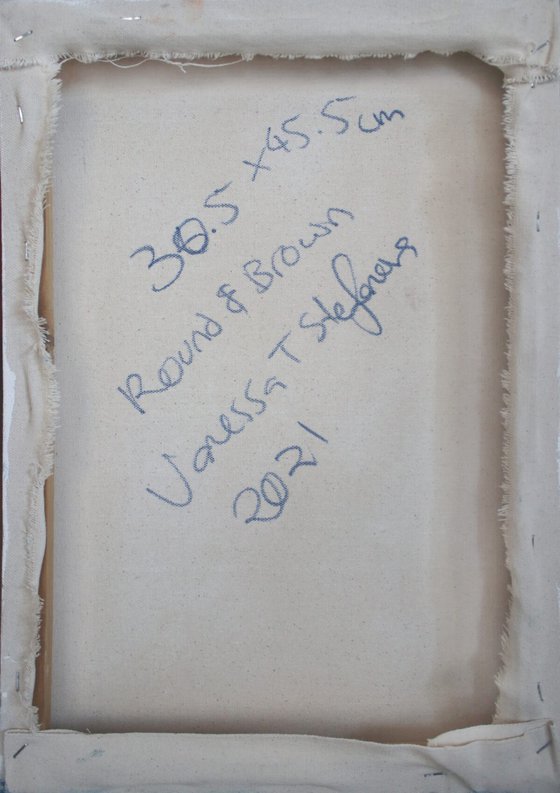 30.5 x 45.5 cm
Round & Brown
Vanessa T Stefanova
2021